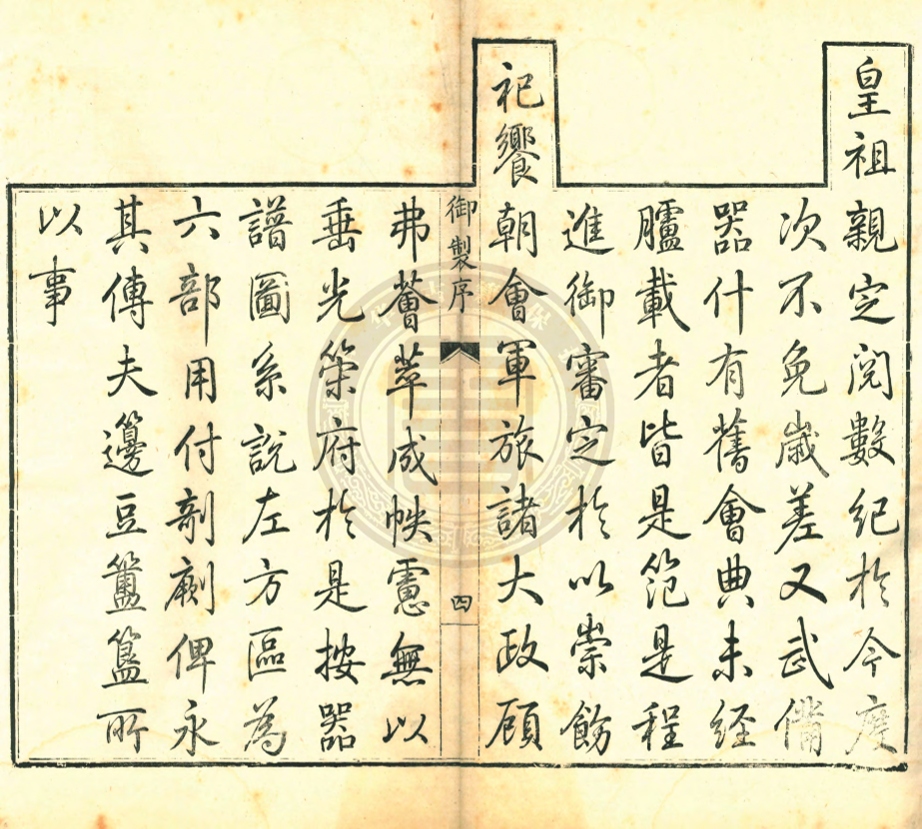 皇祖親定閱數紀於今度
次不免歲差又武備
器什有舊會典未經
臚載者皆是範是程
進御審定於以崇飭
祀饗朝會軍旅諸大政顧
御製序
四
弗薈萃成帙慮無以
垂光策府於是按器
譜圖系說左方區為
六部用付剞劂俾永
其傳夫籩豆簠簋所
以事